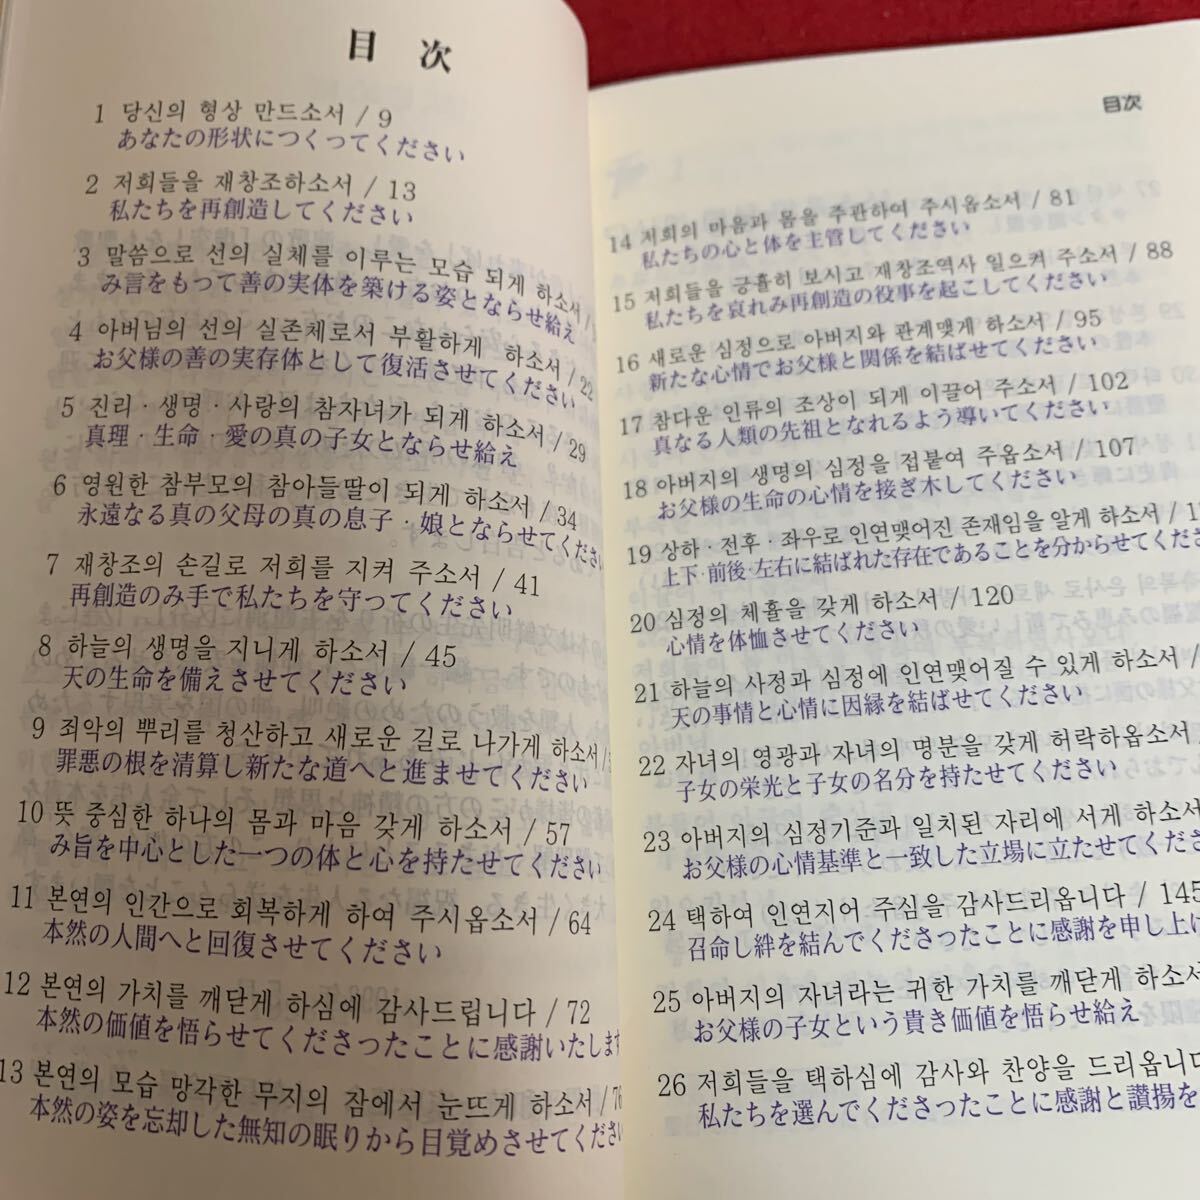 目 次
1 당신의 형상 만드소서 / 9
あなたの形状につくってください
2 저희들을 재창조하소서 / 13
私たちを再創造してください
3 말씀으로 선의 실체를 이루는 모습 되게 하소서 /
み言をもって善の実体を築ける姿とならせ給え
4 아버님의 선의 실존체로서 부활하게 하소서 / 22
お父様の善の実存体として復活させてください
5 진리 · 생명 · 사랑의 참자녀가 되게 하소서 / 29
真理 · 生命 · 愛の真の子女とならせ給え
6 영원한 참부모의 참아들딸이 되게 하소서 / 34
永遠なる真の父母の真の息子 · 娘とならせてください
7 재창조의 손길로 저희를 지켜 주소서 / 41
再創造のみ手で私たちを守ってください
8 하늘의 생명을 지니게 하소서 / 45
天の生命を備えさせてください
9 죄악의 뿌리를 청산하고 새로운 길로 나가게 하소서 /
罪悪の根を清算し新たな道へと進ませてください
10 뜻 중심한 하나의 몸과 마음 갖게 하소서 / 57
み旨を中心とした一つの体と心を持たせてください
11 본연의 인간으로 회복하게 하여 주시옵소서 / 64
本然の人間へと回復させてください
12 본연의 가치를 깨닫게 하심에 감사드립니다 / 72
本然の価値を悟らせてくださったことに感謝いたします
13 본연의 모습 망각한 무지의 잠에서 눈뜨게 하소서 / 76
本然の姿を忘却した無知の眠りから目覚めさせてください
目次
14 저희의 마음과 몸을 주관하여 주시옵소서 / 81
私たちの心と体を主管してください
15 저희들을 긍휼히 보시고 재창조역사 일으켜 주소서 / 88
私たちを哀れみ再創造の役事を起こしてください
16 새로운 심정으로 아버지와 관계맺게 하소서 / 95
新たな心情でお父様と関係を結ばせてください
17 참다운 인류의 조상이 되게 이끌어 주소서 / 102
真なる人類の先祖となれるよう導いてください
18 아버지의 생명의 심정을 접붙여 주옵소서 / 107
お父様の生命の心情を接ぎ木してください
19 상하 · 전후 · 좌우로 인연맺어진 존재임을 알게 하소서 / 1
上下 · 前後 · 左右に結ばれた存在であることを分からせてくださ
20 심정의 체휼을 갖게 하소서 / 120
心情を体恤させてください
21 하늘의 사정과 심정에 인연맺어질 수 있게 하소서 /
天の事情と心情に因縁を結ばせてください
22 자녀의 영광과 자녀의 명분을 갖게 허락하옵소서
子女の栄光と子女の名分を持たせてください
23 아버지의 심정기준과 일치된 자리에 서게 하소서
お父様の心情基準と一致した立場に立たせてくださ
24 택하여 인연지어 주심을 감사드리옵니다 / 145
召命し絆を結んでくださったことに感謝を申し上げ
25 아버지의 자녀라는 귀한 가치를 깨닫게 하소서
お父様の子女という貴き価値を悟らせ給え
26 저희들을 택하심에 감사와 찬양을 드리옵니다
私たちを選んでくださったことに感謝と讃揚を